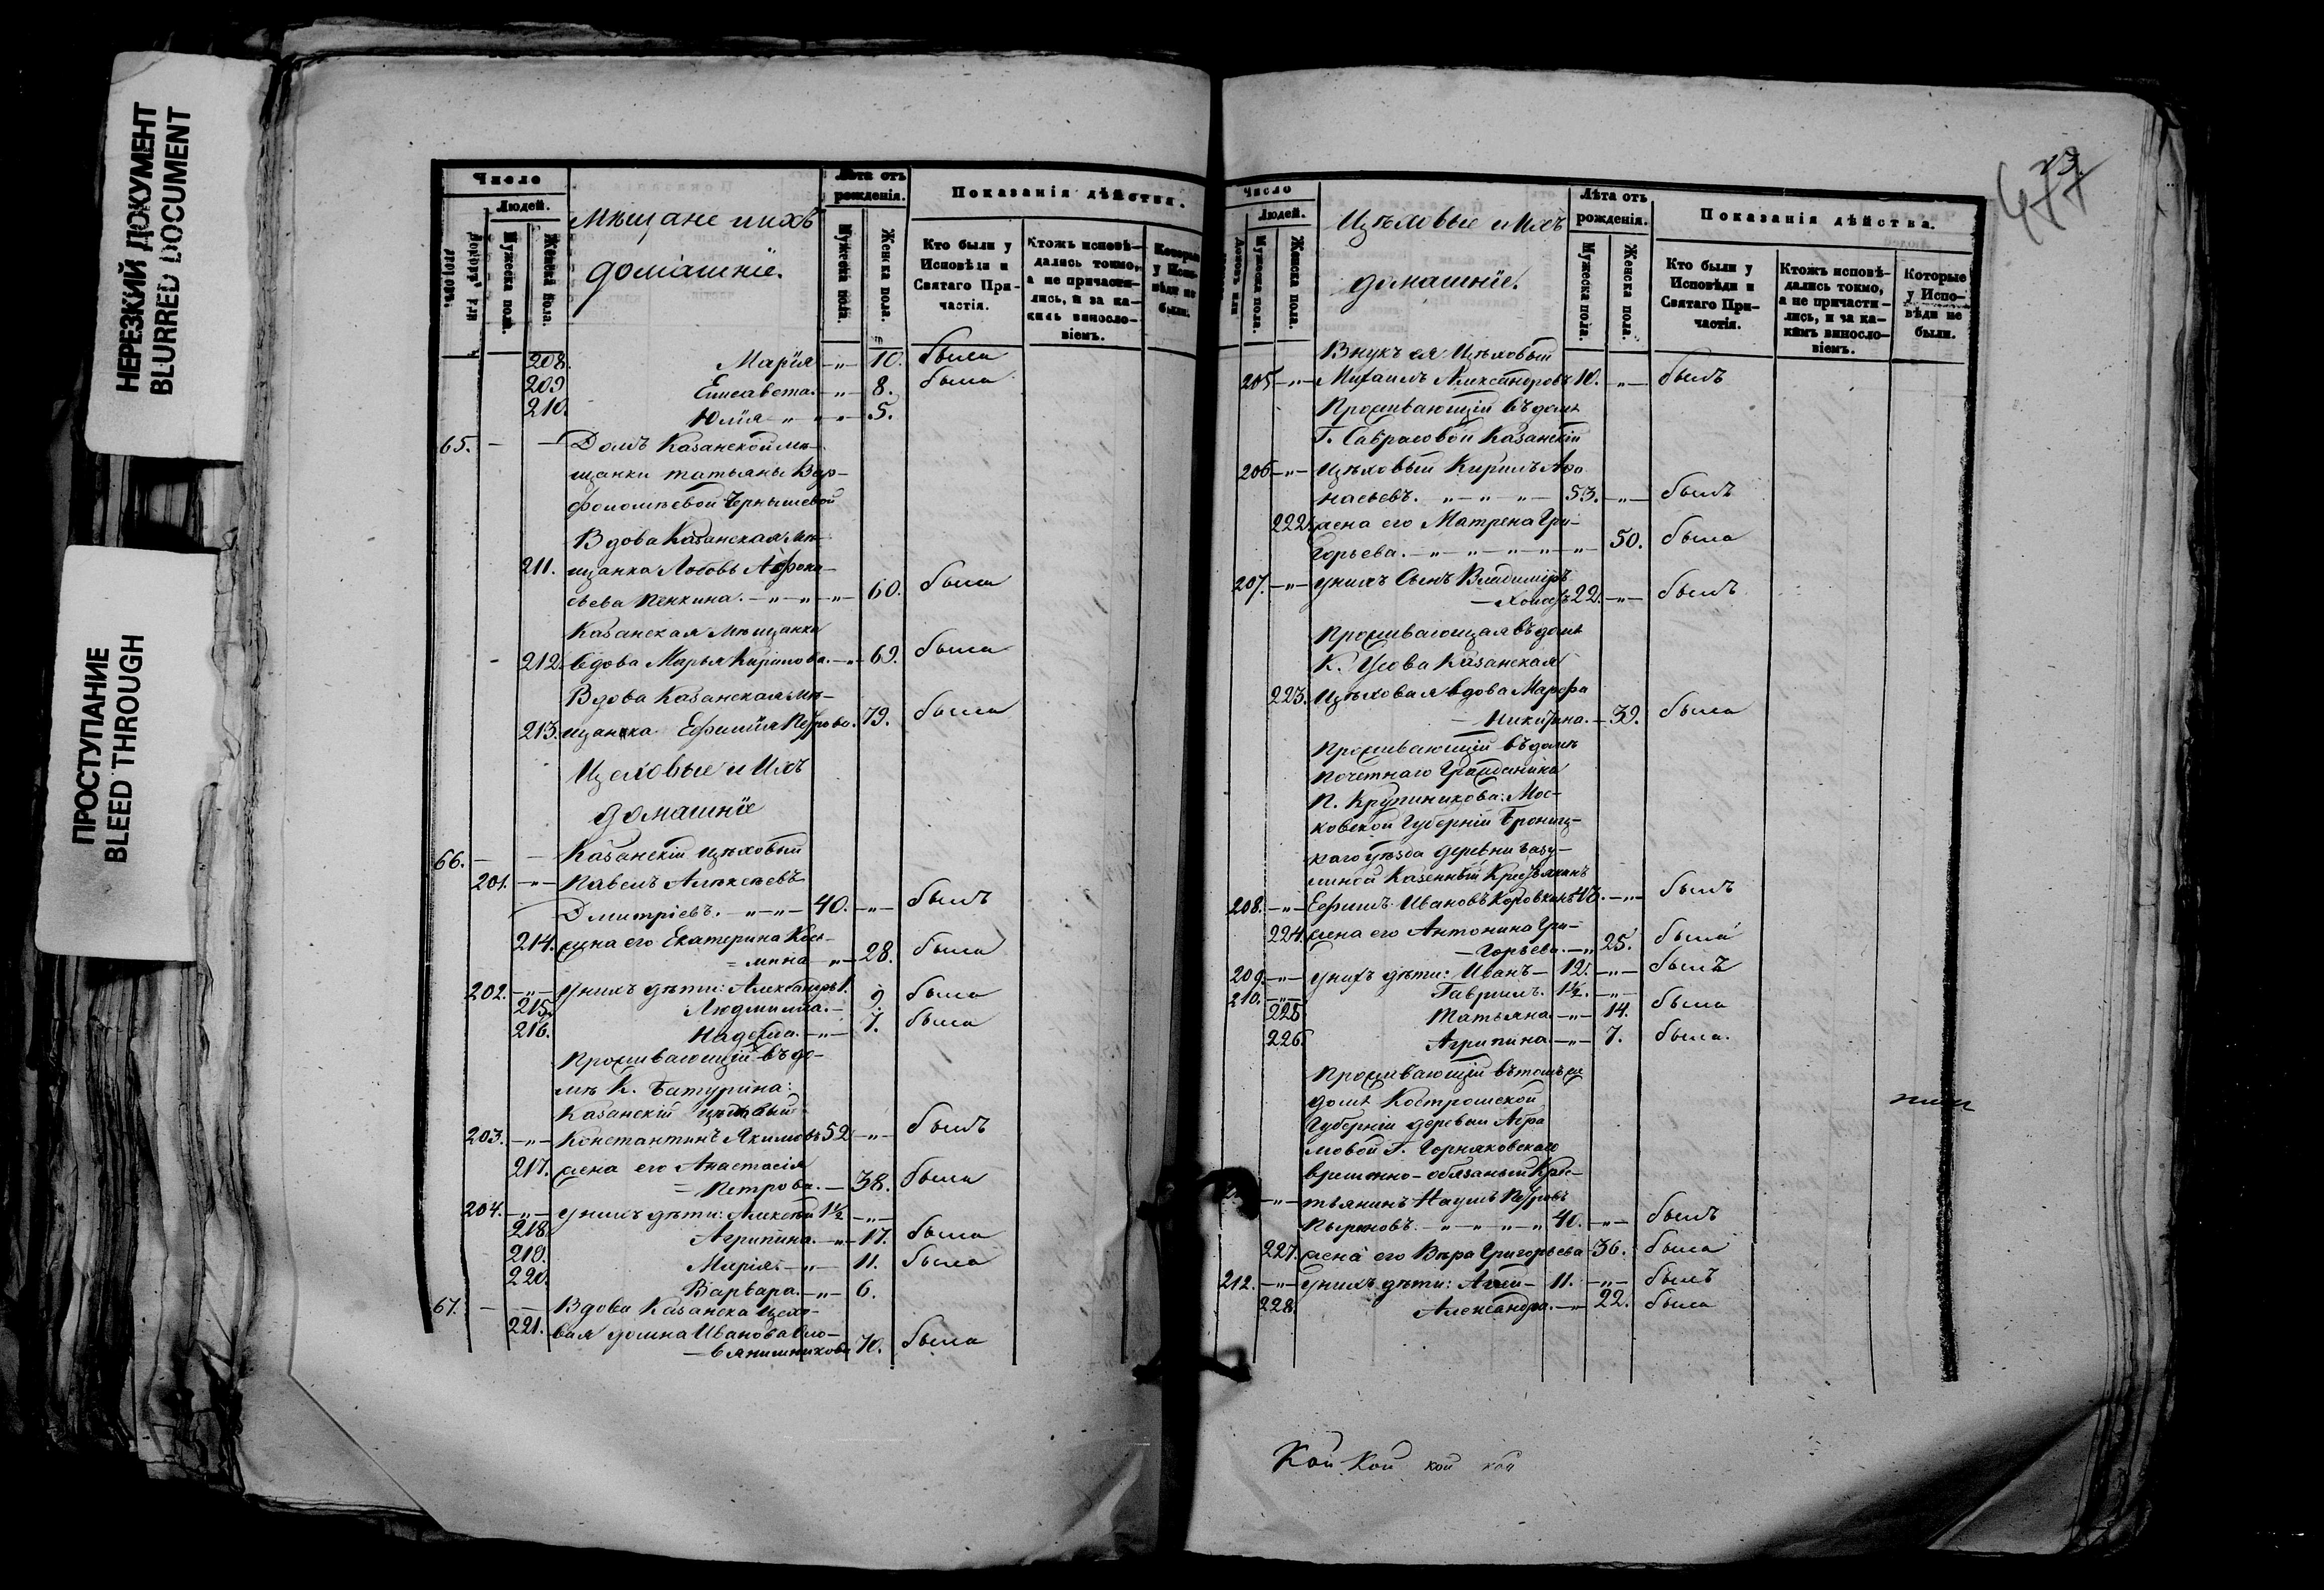 НЕРЕЗКИЙ ДОКУМЕНТ
BLURRED DOCUMENT
ПРОСТУПАНИЕ
BLEED THROUGH
Число
Людей.
Мужеска пола.
Женска пола.
Мѣщане и ихъ
домашніе.
Лѣта отъ
рожденія.
Мужеска пола.
Женска пола.
Показанія дѣйства.
Кто были у
Исповѣди и
Святаго При-
частія.
Ктожъ исповѣ-
дались токмо,
а не причасти-
лись, и за ка-
кимъ винosло-
віемъ.
Которые
у Испо-
вѣди не
были.
208. Марія — „ — 10. была
209 Елисавета. — „ — 8. была
210. Юлія „ — „ — „ 5.
65. — — Домъ Казанской мѣ-
щанки Татьяны Вар-
фоломѣевой Чернышевой
Вдова Казанская мѣ-
211. щанка Любовь Афона-
сьева Пенкина. — „ — „ — „ — 60. была
Казанская мѣщанка
212. вдова Марья Кирилова. — „ — 69. была
Вдова Казанская мѣ-
213. щанка Ефимія Петрова. 79. была
Цеховые и Ихъ
домашніе
66. — — Казанскій цѣховый
201. — „ — Павелъ Алексѣевъ
Дмитріевъ. — „ — „ — 40. — „ — былъ
214. жена его Екатерина Кось-
= мина — „ — 28. была
202. — „ — у нихъ дѣти: Александръ 1.
215. Людмилла. — 9. была
216. Надежда. — „ — 7. была
Проживающій въ до-
мѣ К. Батурина:
Казанскій цѣховый
203. — „ — Константинъ Якимовъ 52 — „ — былъ
217. жена его Анастасія
= Петрова. — 38. была
204. — „ — у нихъ дѣти: Алексѣй 1½ — „ —
218. Агрипина. — „ — 17. была
219. Марія — „ — 11. была
220. Варвара. — „ — 6.
67. — — Вдова Казанска цехо-
221. вая домна Иванова
70. была
477
Число
Людей.
Мужеска пола.
Женска пола.
Цѣховые и Ихъ
домашніе.
Лѣта отъ
рожденія.
Мужеска пола.
Женска пола.
Показанія дѣйства.
Кто были у
Исповѣди и
Святаго При-
частія.
Ктожъ исповѣ-
дались токмо,
а не причасти-
лись, и за ка-
кимъ винosло-
віемъ.
Которые
у Испо-
вѣди не
были.
Внукъ ея Цѣховый
205 — „ — Михаилъ Александровъ 10. — „ — былъ
Проживающій въ домѣ
Г. Саврасовой Казанскій
206 — „ — Цѣховый Кирилъ Афо
насьевъ. „ — „ — „ — 53. — „ — былъ
222. жена его Матрена Гри-
горьева. — „ — „ — „ — „ — „ — 50. была
207. — „ — у нихъ Сынъ Владиміръ
— холостъ 22. — „ — былъ
Проживающая въ домѣ
К. Усова Казанская
223. Цѣховая вдова Марфа
— Никитина. — 39. была
Проживающій въ домѣ
почетнаго Гражданина
П. Крупникова: Мос-
ковской Губерніи Бронниц-
каго уѣзда деревни
Казенный Крестьянинъ
208. — „ — Ефимъ Ивановъ Коровкинъ — „ — былъ
224. жена его Антонина Гри-
— горьева. — „ 25. была
209. — „ — у нихъ дѣти: Иванъ — 12. — „ — былъ
210. — „ — Гаврилъ. 1½. — „ —
225 Татьяна. — „ — 14. была
226. Агрипина. — „ — 7. была.
Проживающій въ томъ же
домѣ Костромской
Губерніи деревни Абра
мовой Г. Горняковскаго
временно-обязанный Крес-
— „ — тьянинъ Наумъ Петровъ
— „ — „ — „ 40. — „ — былъ
227. жена его Вѣра Григорьева 36. была
212. — „ — у нихъ дѣти: — 11. — „ — былъ
228. Александра. — „ 22. была
Кой Кой кой кой